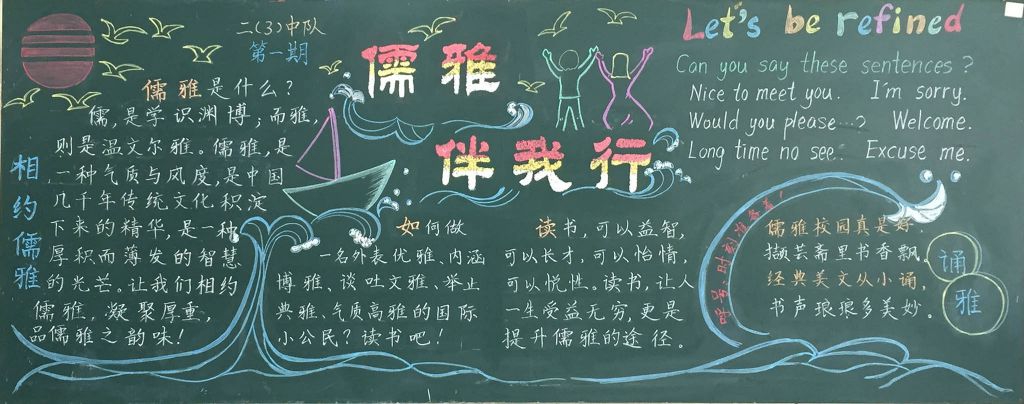 二(3)中队
第一期
儒雅伴我行
Let's be refined
相约儒雅
儒雅是什么？
儒，是学识渊博；而雅，
则是温文尔雅。儒雅，是
一种气质与风度，是中国
几千年传统文化积淀
下来的精华，是一种
厚积而薄发的智慧
的光芒。让我们相约
儒雅，凝聚厚重，
品儒雅之韵味！
如何做
一名外表优雅、内涵
博雅、谈吐文雅、举止
典雅、气质高雅的国际
小公民？读书吧！
读书，可以益智，
可以长才，可以怡情，
可以悦性。读书，让人
一生受益无穷，更是
提升儒雅的途径。
Can you say these sentences?
Nice to meet you. I'm sorry.
Would you please...? Welcome.
Long time no see. Excuse me.
儒雅校园真是好，
撷芸斋里书香飘，
经典美文从小诵，
书声琅琅多美妙。
诵
雅